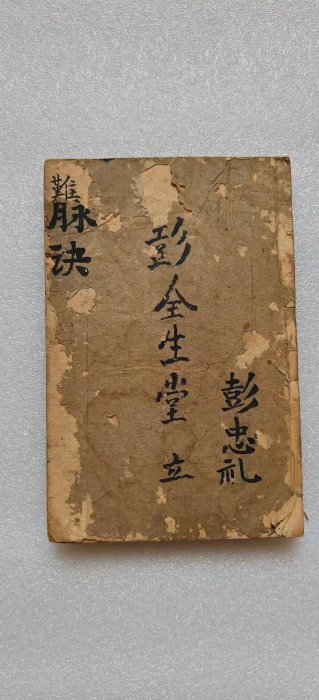 彭忠礼
彭全生堂 立
難脉诀